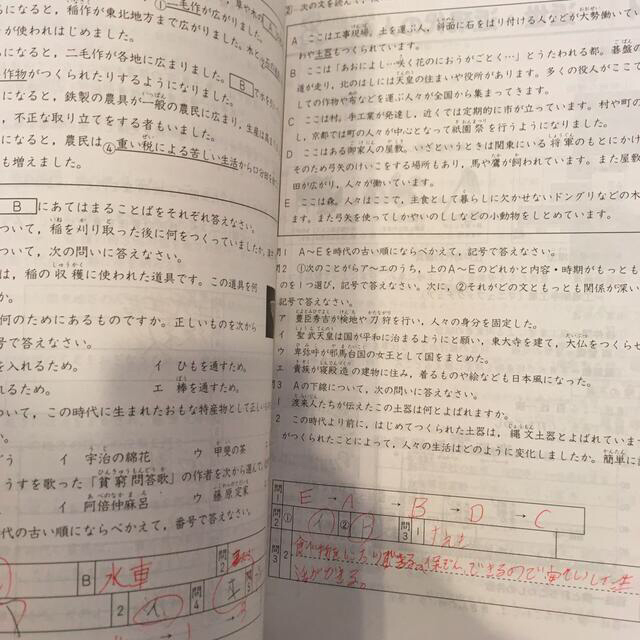 稲作が東北地方まで広がりました。
①二毛作が広がりました。
が使われはじめました。
になると、二毛作が各地に広まりました。
作物がつくられたりするようになりました。 B
になると、鉄製の農具が一般の農民に広まり、生産は
、不正な取り立てをする者もいました。
になると、農民は④重い税による苦しい生活から口分田を
も増えました。
B にあてはまることばをそれぞれ答えなさい。
ついて、稲を刈り取った後に何をつくっていましたか。
ついて、次の問いに答えなさい。
は、稲の収穫に使われた道具です。この道具を何
か。
何のためにあるものですか。正しいものを次から
号で答えなさい。
を入れるため。 イ ひもを通すため。
れるため。 エ 棒を通すため。
ついて、この時代に生まれたおもな特産物として正しい
どう イ 宇治の綿花 ウ 甲斐の茶
うすを歌った「貧窮問答歌」の作者を次から選んで、
イ 阿倍仲麻呂 ウ 藤原定家
代の古い順にならべかえて、番号で答えなさい。
B 水車 問2
2 イ 問4 エ
次の文を読んで、
A ここは工事現場。土を運ぶ人、斜面に石をはり付ける人などが大勢働いて
わや土器もつくります。
B ここは「あおによし…咲く花のにおうがごとく…」とうたわれる都。碁盤の
道が走り、北のはしには天皇の住まいや役所があります。多くの役人がここで
しての作物や布などを運ぶ人々が全国から集まってきます。
C ここは村。手工業が発達し、近くでは定期的に市が立っています。村や町の
し、京都では町の人々が中心となって祇園祭を行うようになりました。
D ここはある御家人の屋敷。いざというときは関東にいる将軍のもとにかけ
そのため弓矢のけいこをする場所もあり、馬や鷹が飼われています。また屋敷
田が広がり、人々が働いています。
E ここは森。人々はここで、主食として暮らしに欠かせないドングリなどの木
ます。また弓矢を使ってしかやいのししなどの小動物をしとめています。
問1 A～Eを時代の古い順にならべかえて、記号で答えなさい。
問2 ①次のことがらア～エのうち、上のA～Eのどれかと内容・時期がもっとも
のを1つ選び、記号で答えなさい。次に、②それがどの文ともっとも関係が深い
記号で答えなさい。
ア 豊臣秀吉が検地や刀狩を行い、人々の身分を固定した。
イ 聖武天皇は国が平和に治まるようにと願い、東大寺を建て、大仏をつくらせ
ウ 卑弥呼が邪馬台国の女王として国をまとめた。
エ 貴族が寝殿造の建物に住み、着るものや絵なども日本風になった。
問3 Aの下線について、次の問いに答えなさい。
1 渡来人たちが伝えたこの土器は何とよばれますか。
2 この時代より前に、はじめてつくられた土器は、縄文土器とよばれています
がつくられたことによって、人々の生活はどのように変化しましたか。簡単に
問1 E → A → B → D → C
問2 ① イ ② B 問3 1
問3 2